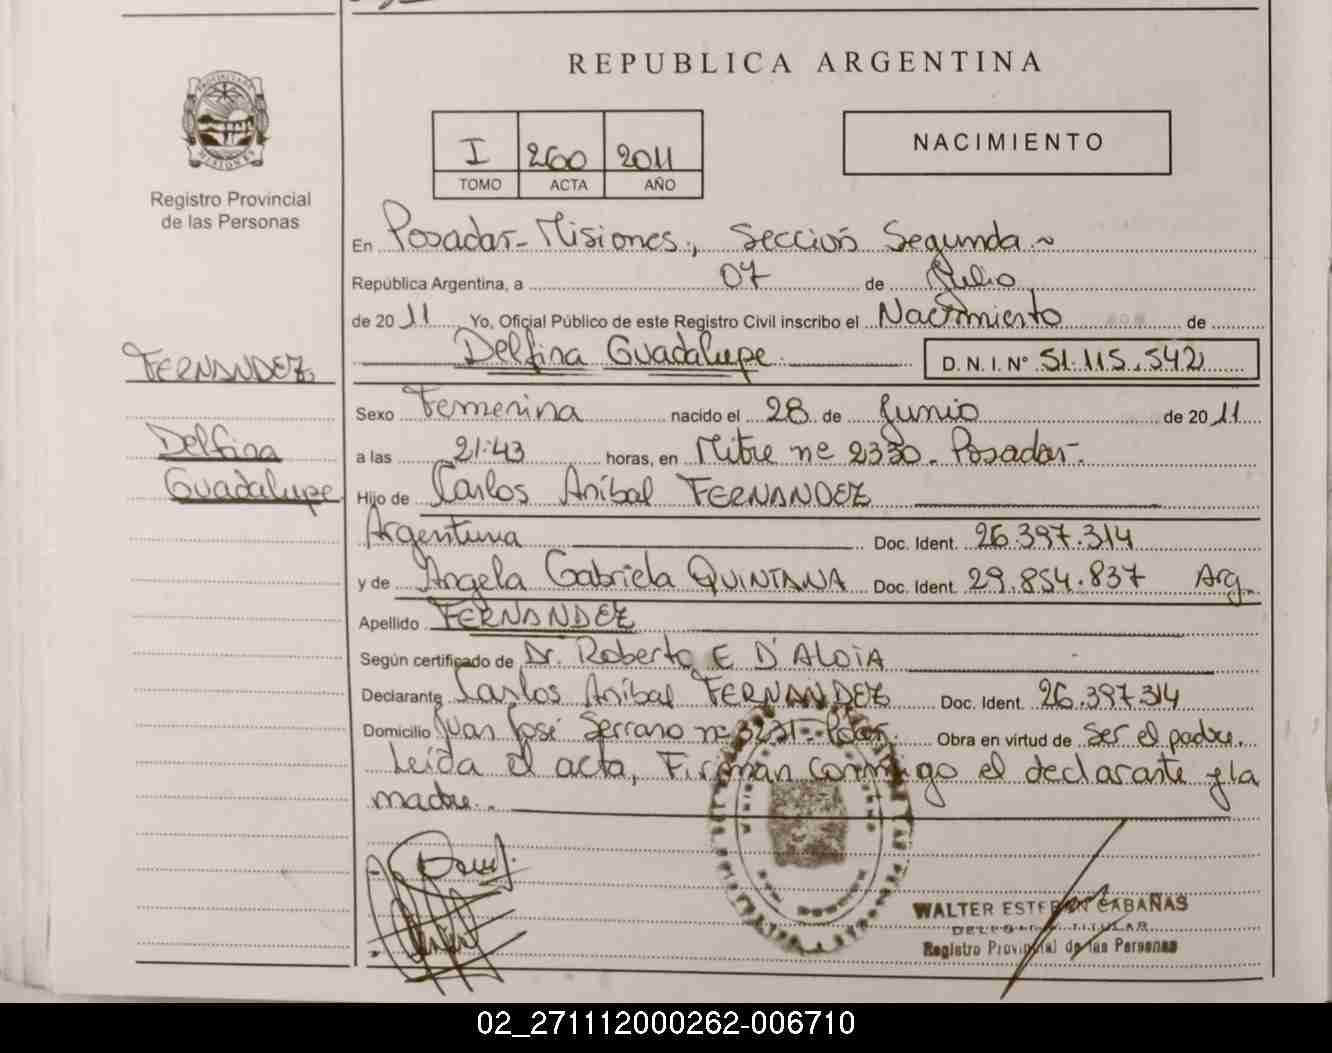 REPUBLICA ARGENTINA
I 260 2011
TOMO ACTA AÑO
NACIMIENTO
Registro Provincial
de las Personas
En Posadas-Misiones, Sección Segunda ~
República Argentina, a 07 de Julio
de 2011 Yo, Oficial Público de este Registro Civil inscribo el Nacimiento de
Delfina Guadalupe D.N.I. Nº 51.115.542
FERNANDEZ
Delfina
Guadalupe
Sexo Femenina nacido el 28 de Junio de 2011
a las 21:43 horas, en Mitre nº 2330. Posadas.
Hijo de Carlos Aníbal FERNANDEZ
Argentina Doc. Ident. 26.397.314
y de Angela Gabriela QUINTANA Doc. Ident. 29.854.837 Arg.
Apellido FERNANDEZ
Según certificado de Dr. Roberto E D'ALOIA
Declarante Carlos Aníbal FERNANDEZ Doc. Ident. 26.397.314
Domicilio Juan José Serrano nº 3231. Pdas. Obra en virtud de Ser el padre.
Leída el acta, Firman conmigo el declarante y la
madre.
WALTER ESTEBAN CABAÑAS
DELEGADO TITULAR
Registro Provincial de las Personas
02_271112000262-006710